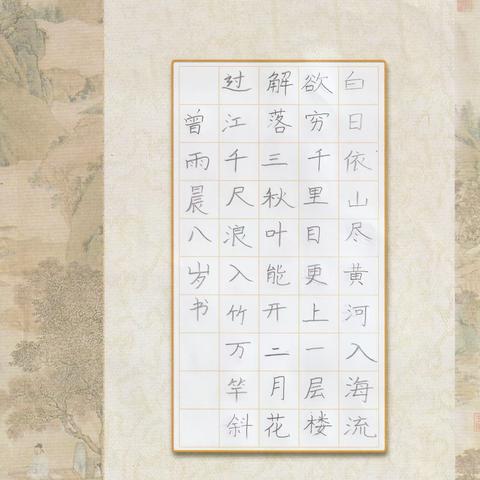 白日依山尽黄河入海流
欲穷千里目更上一层楼
解落三秋叶能开二月花
过江千尺浪入竹万竿斜
曾雨晨八岁书